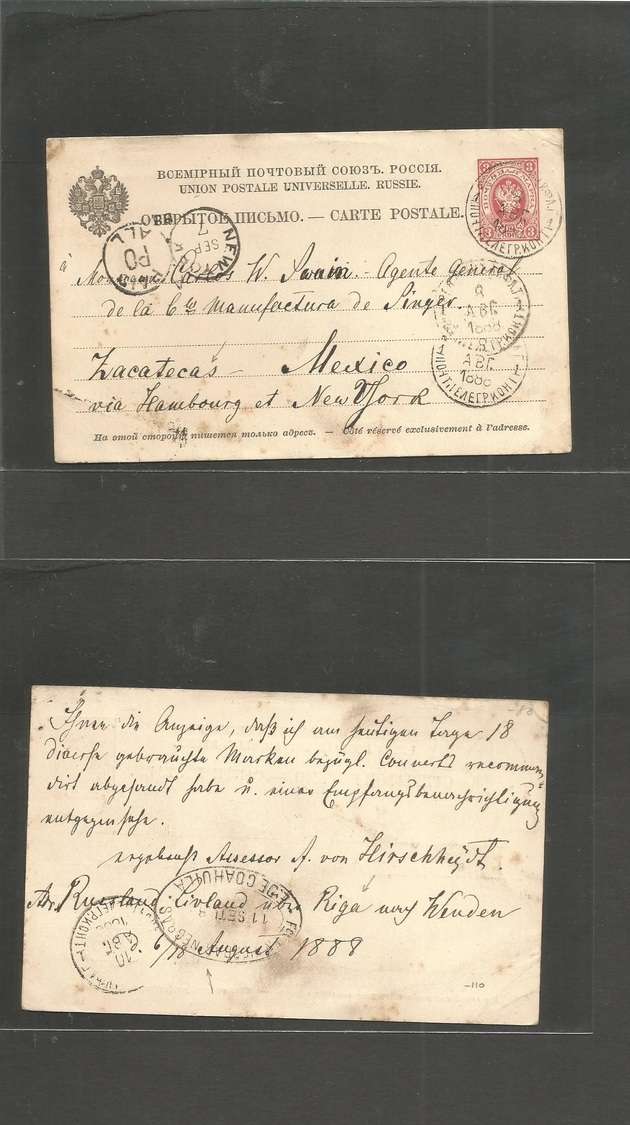 ВСЕМІРНЫЙ ПОЧТОВЫЙ СОЮЗЪ. РОССІЯ.
UNION POSTALE UNIVERSELLE. RUSSIE.
ОТКРЫТОЕ ПИСЬМО. — CARTE POSTALE.
3 3
NEW YORK
SEP
7
PAID
ALL
à Monsieur Carlos W. Swain. - Agente General
de la Cia Manufactura de Singer.
8
АВГ.
1888
АВГ.
1888
Zacatecas — Mexico
via Hambourg et New York
На этой сторонѣ пишется только адресъ. — Côté réservé exclusivement à l'adresse.
Ihnen die Anzeige, daß ich am heutigen Tage 18
diverse gebrauchte Marken bezügl. Couverts recomman-
dirt abgesandt habe u. einer Empfangsbenachrichtigung
entgegensehe.
ergebenst Assessor A. von Hirschheydt.
Adr. Russland Livland über Riga nach Wenden
6/18 August 1888
DE COAHUILA
11 SET
NEGRAS
10
АВГ.
-110